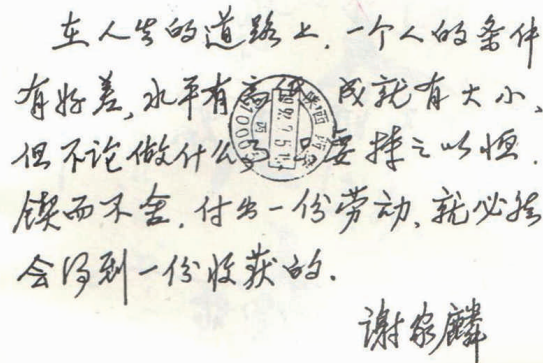 在人生的道路上，一个人的条件
有好差，水平有高低，成就有大小，
但不论做什么，要持之以恒，
锲而不舍，付出一份劳动，就必然
会得到一份收获的．
谢家麟
陕西